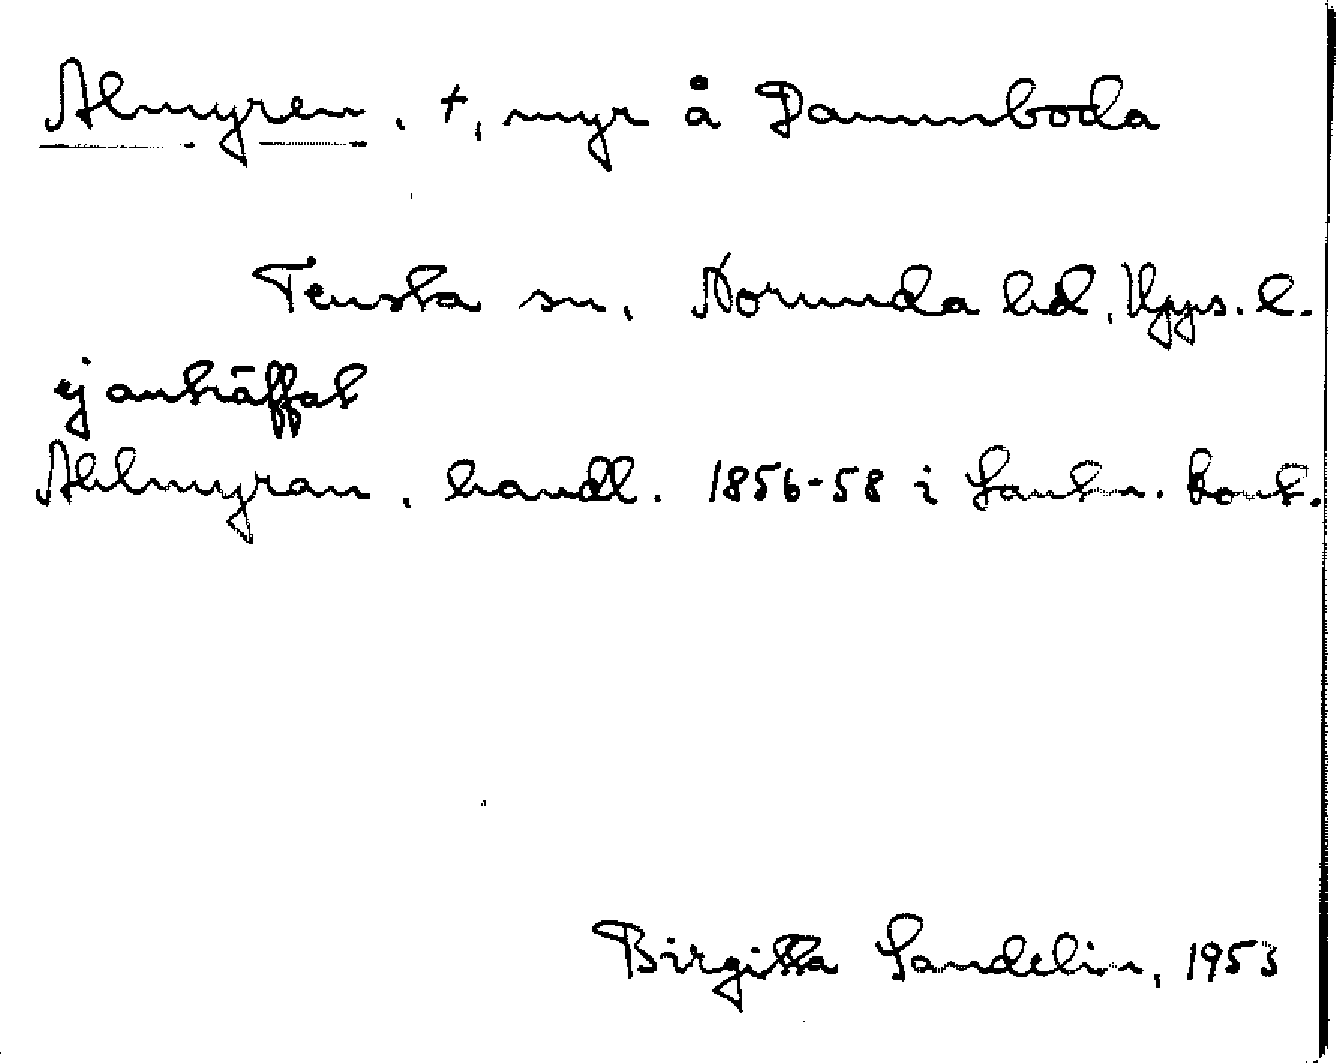 Almyren, †, myr å Dammboda
Tensta sn, Norunda hd, Upps. l.
ej anträffat
Ahlmyran, handl. 1856-58 i Lantm. kont.
Birgitta Sandelin, 1953